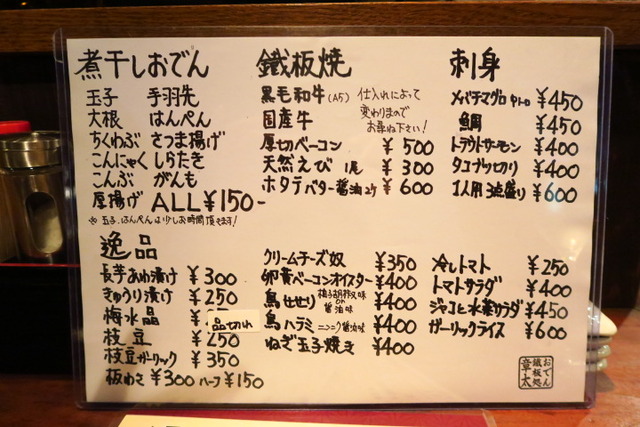 煮干しおでん
玉子 手羽先
大根 はんぺん
ちくわぶ さつま揚げ
こんにゃく しらたき
こんぶ がんも
厚揚げ ALL ¥150-
※玉子、はんぺんは少しお時間頂きます!
鐵板焼
黒毛和牛(A5) 仕入れによって
国産牛 変わりますので
お尋ね下さい!
厚切ベーコン ¥500
天然えび 1尾 ¥300
ホタテバター醤油 ¥600
刺身
メバチマグロ中トロ ¥450
鯛 ¥450
トラウトサーモン ¥400
タコブツ切り ¥400
1人用3点盛り ¥600
逸品
長芋あわ漬け ¥300
きゅうり漬け ¥250
梅水晶 ¥
品切れ
枝豆 ¥250
枝豆ガーリック ¥350
板わさ ¥300 ハーフ ¥150
クリームチーズ奴 ¥350
卵黄ベーコンオイスター ¥400
鳥せせり 柚子胡椒味 or 醤油味 ¥400
鳥ハラミ ニンニク醤油味 ¥400
ねぎ玉子焼き ¥400
冷しトマト ¥250
トマトサラダ ¥400
ジャコと水菜サラダ ¥450
ガーリックライス ¥600
おでん
鐵板処
章太